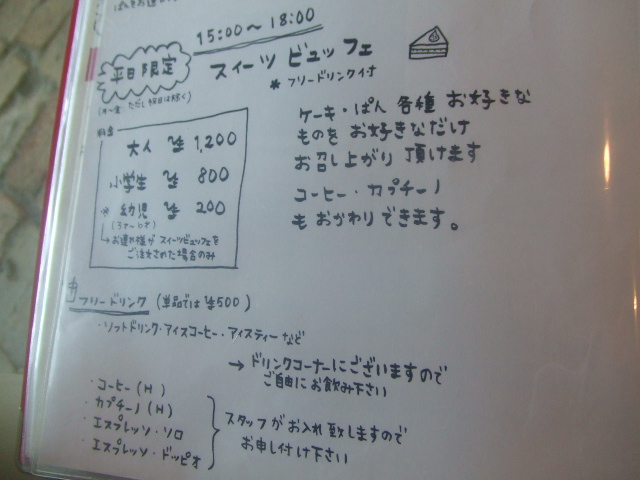 15:00～18:00
平日限定
スイーツ ビュッフェ
* フリードリンク付
(月～金 ただし祝日は除く)
料金
大人 ¥1,200
小学生 ¥800
* 幼児 ¥200
(3才～6才)
→お連れ様が スイーツビュッフェを
ご注文された場合のみ
ケーキ・ぱん 各種 お好きな
ものを お好きなだけ
お召し上がり 頂けます
コーヒー・カプチーノ
も おかわり できます。
フリードリンク (単品では¥500)
・ソフトドリンク・アイスコーヒー・アイスティー など
→ ドリンクコーナーにございますので
ご自由に お飲み下さい
・コーヒー(H)
・カプチーノ(H)
・エスプレッソ・ソロ
・エスプレッソ・ドッピオ
スタッフがお入れ致しますので
お申し付け下さい